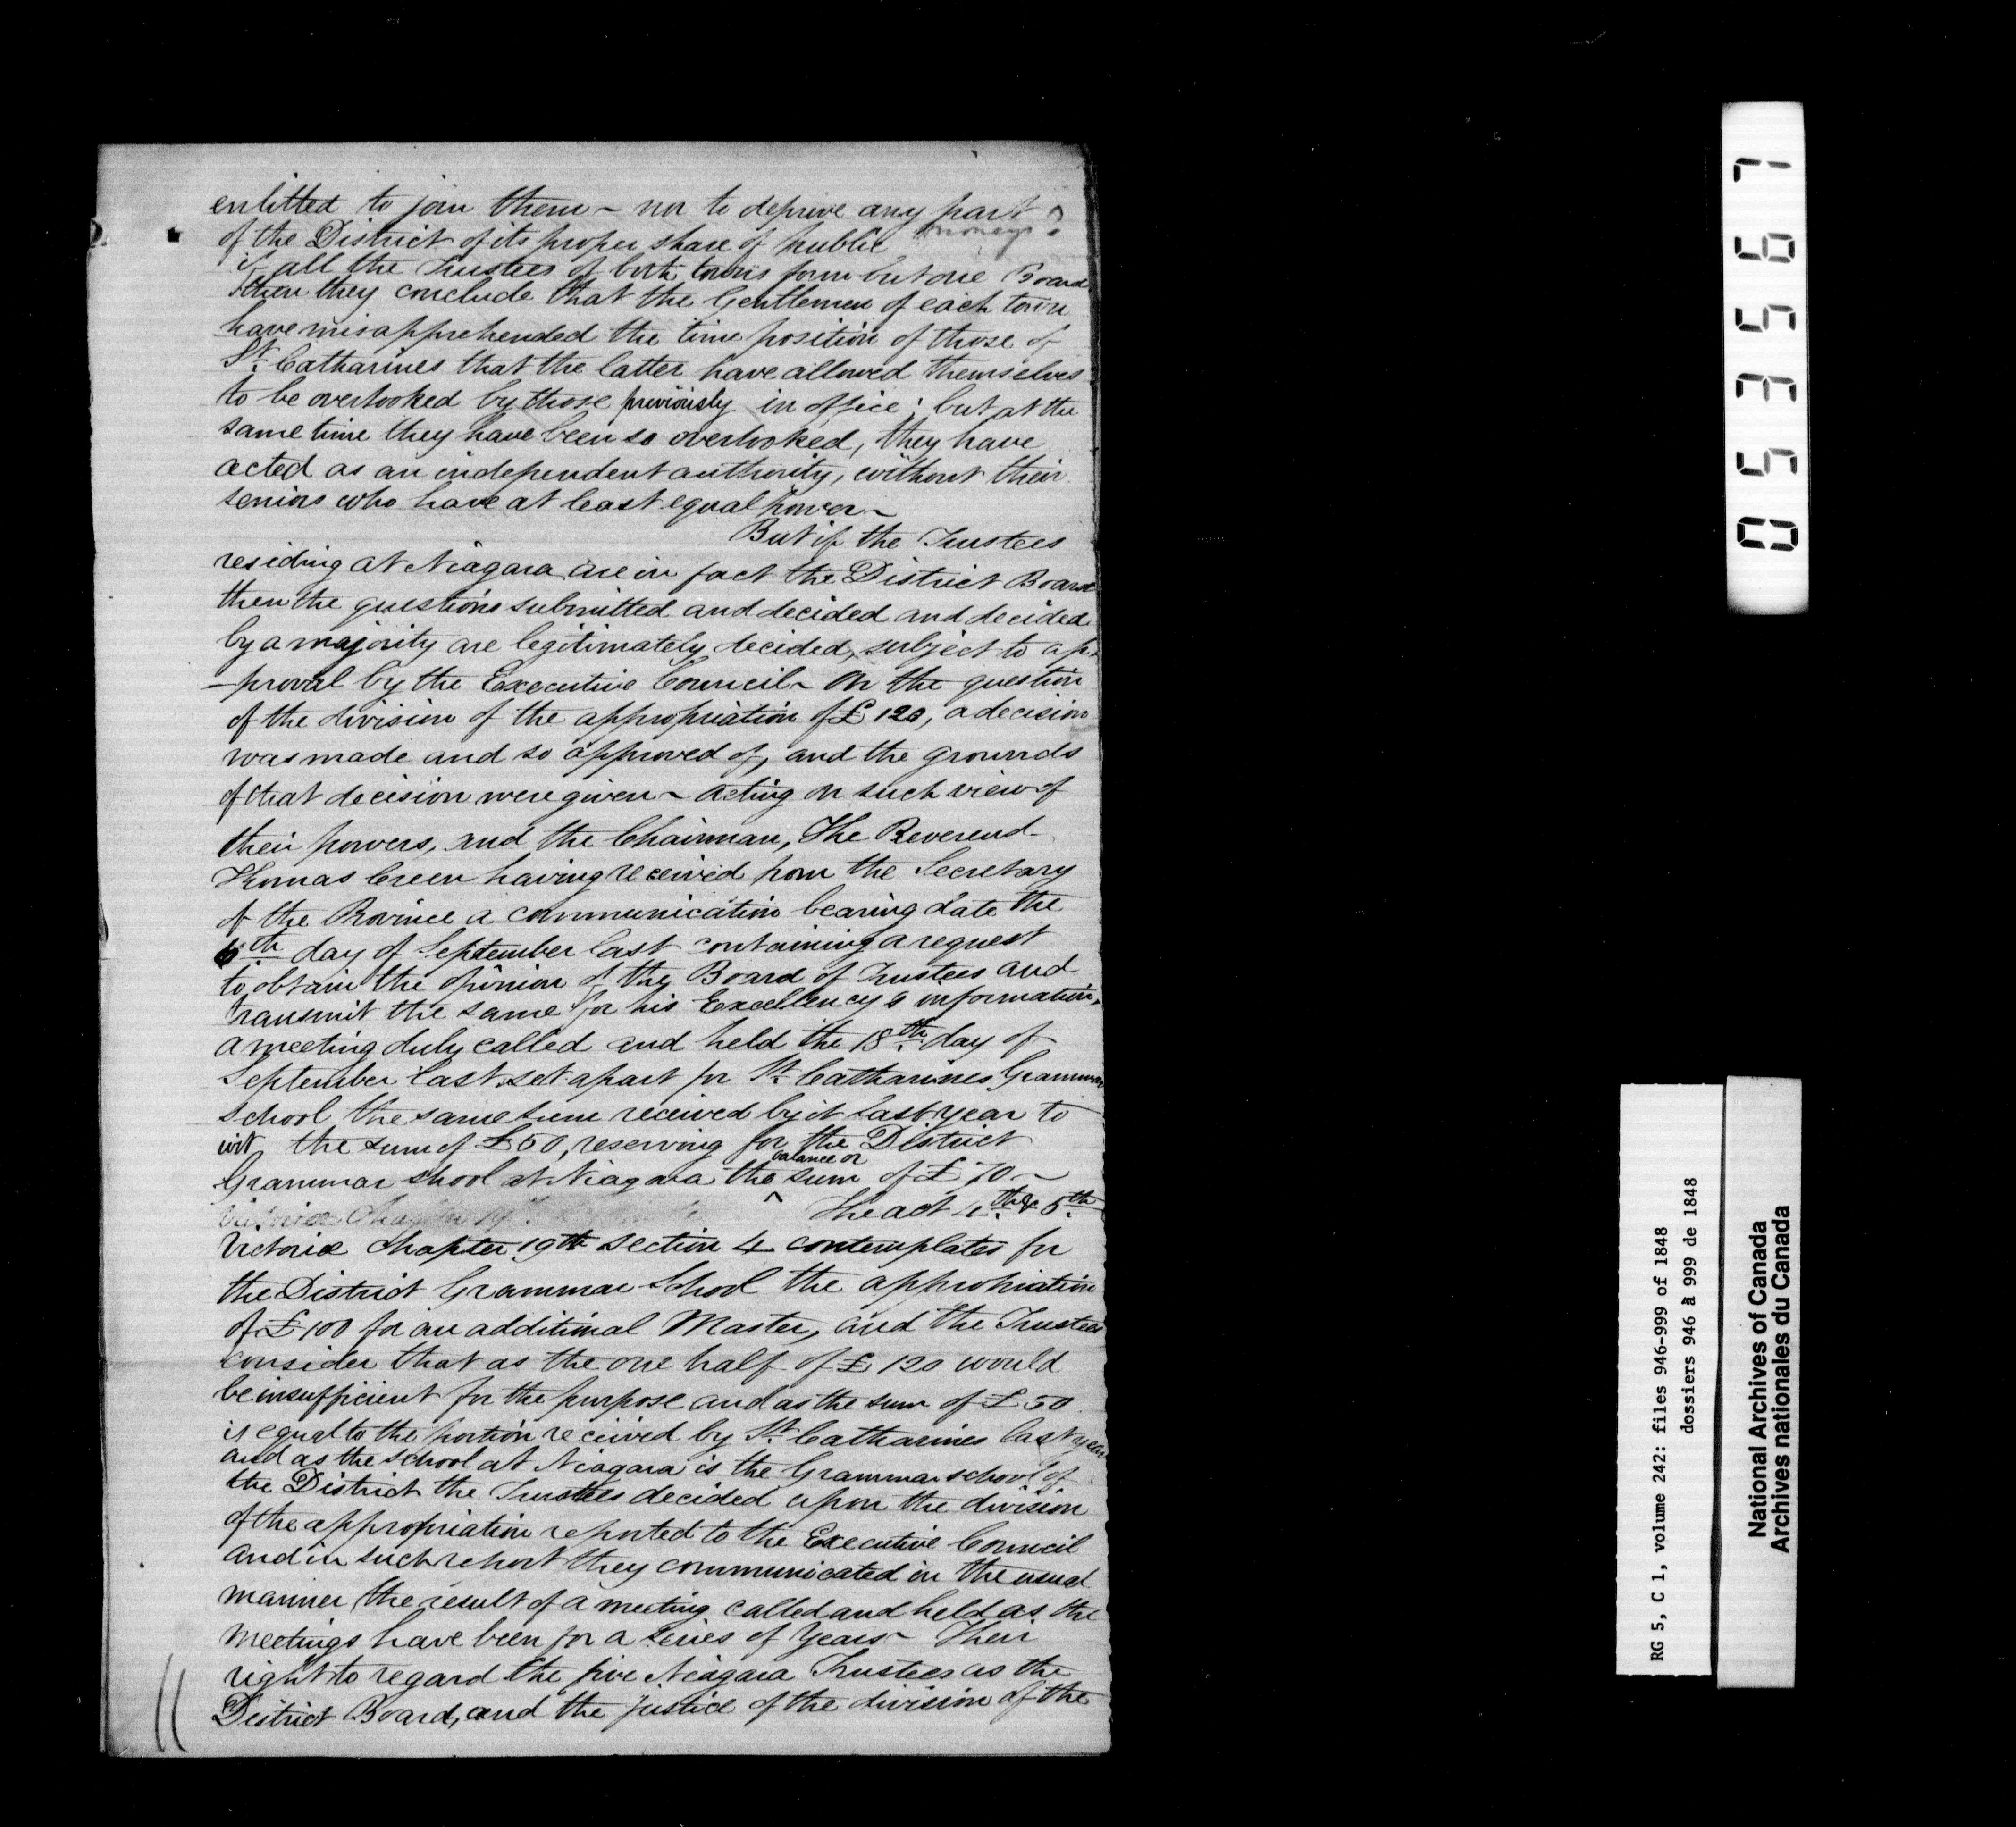 enlitted to join them ~ nor to deprive any part
of the District of its proper share of public moneys?
if all the Trustees of both towns form but one Board
then they conclude that the Gentlemen of each town
have misapprehended the time position of those of
St. Catharines that the latter have allowed themselves
to be overlooked by those previously in office; but at the
same time they have been so overlooked, they have
acted as an independent authority, without their
seniors who have at least equal power ~
But if the Trustees
residing at Niagara are in fact the District Board
then the questions submitted and decided and decided
by a majority are legitimately decided, subject to ap-
-proval by the Executive Council ~ On the question
of the division of the appropriation of £120, a decision
was made and so approved of, and the grounds
of that decision were given ~ acting on such view of
their powers, and the Chairman, The Reverend
Thomas Creen having received from the Secretary
of the Province a communication bearing date the
6th day of September last containing a request
to obtain the opinion of the Board of Trustees and
transmit the same for his Excellency's information,
a meeting duly called and held the 18th day of
September last set apart for St. Catharines Grammar
School the same sum received by it last year to
wit the sum of £50, reserving for the District
Grammar shool at Niagara the balance or sum of £70 ~
The act 4th & 5th
Victoria Chapter 19th section 4 contemplates for
the District Grammar School the appropriation
of £100 for an additional Master, and the Trustees
consider that as the one half of £120 would
be insufficient for the purpose and as the sum of £50
is equal to the portion received by St. Catharines last year
and as the school at Niagara is the Grammar school of
the District the Trustees decided upon the division
of the appropriation reported to the Executive Council
and in such report they communicated in the usual
manner the result of a meeting called and held as the
meetings have been for a series of years ~ Their
right to regard the five Niagara Trustees as the
District Board, and the justice of the division of the
11
053567
RG 5, C 1, volume 242: files 946-999 of 1848
dossiers 946 à 999 de 1848
National Archives of Canada
Archives nationales du Canada